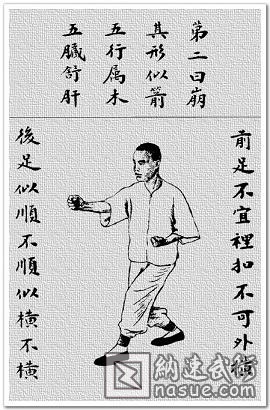 第二曰崩
其形似箭
五行属木
五臟舒肝
前足不宜裡扣不可外横
後足似順不順似横不横
納速武術